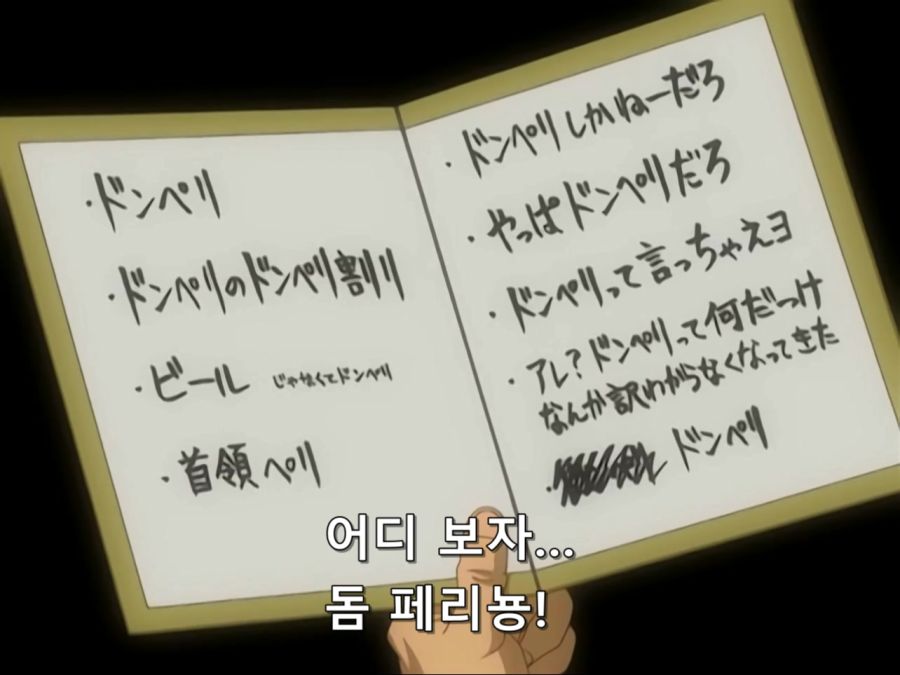 ・ドンペリ
・ドンペリのドンペリ割り
・ビール じゃなくてドンペリ
・首領ペリ
・ドンペリしかねーだろ
・やっぱドンペリだろ
・ドンペリって言っちゃえヨ
・アレ?ドンペリって何だっけ
なんか訳わからなくなってきた
・ドンペリ
어디 보자...
돔 페리뇽!